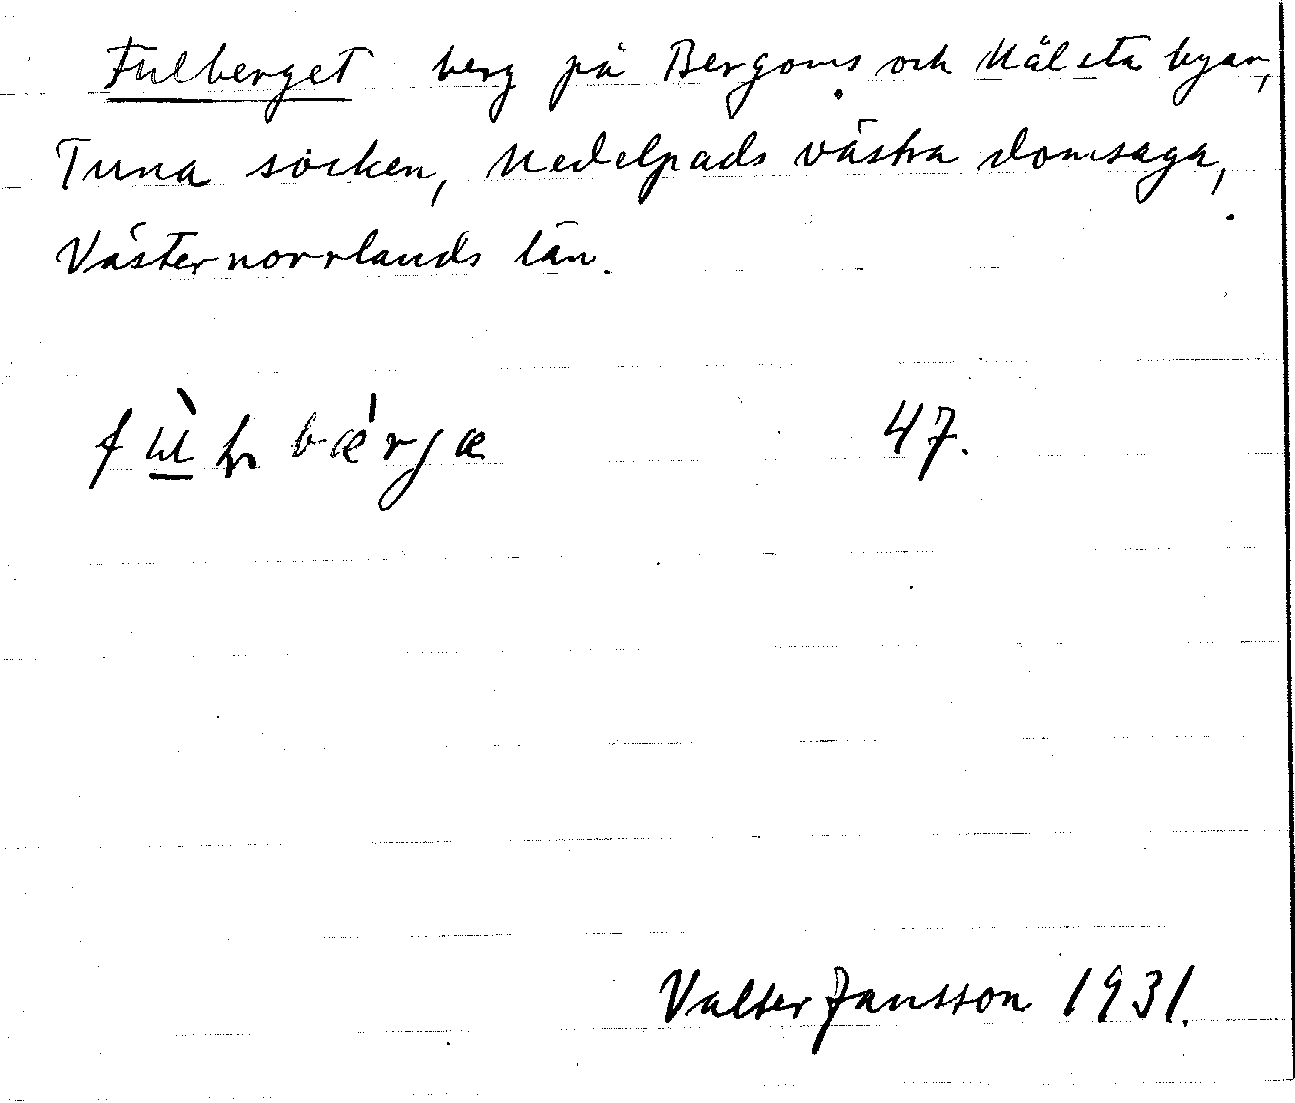 Fulberget berg på Bergoms och Målsta byar,
Tuna socken, Medelpads västra domsaga,
Västernorrlands län.
bærjæ 47.
Valter Jansson 1931.